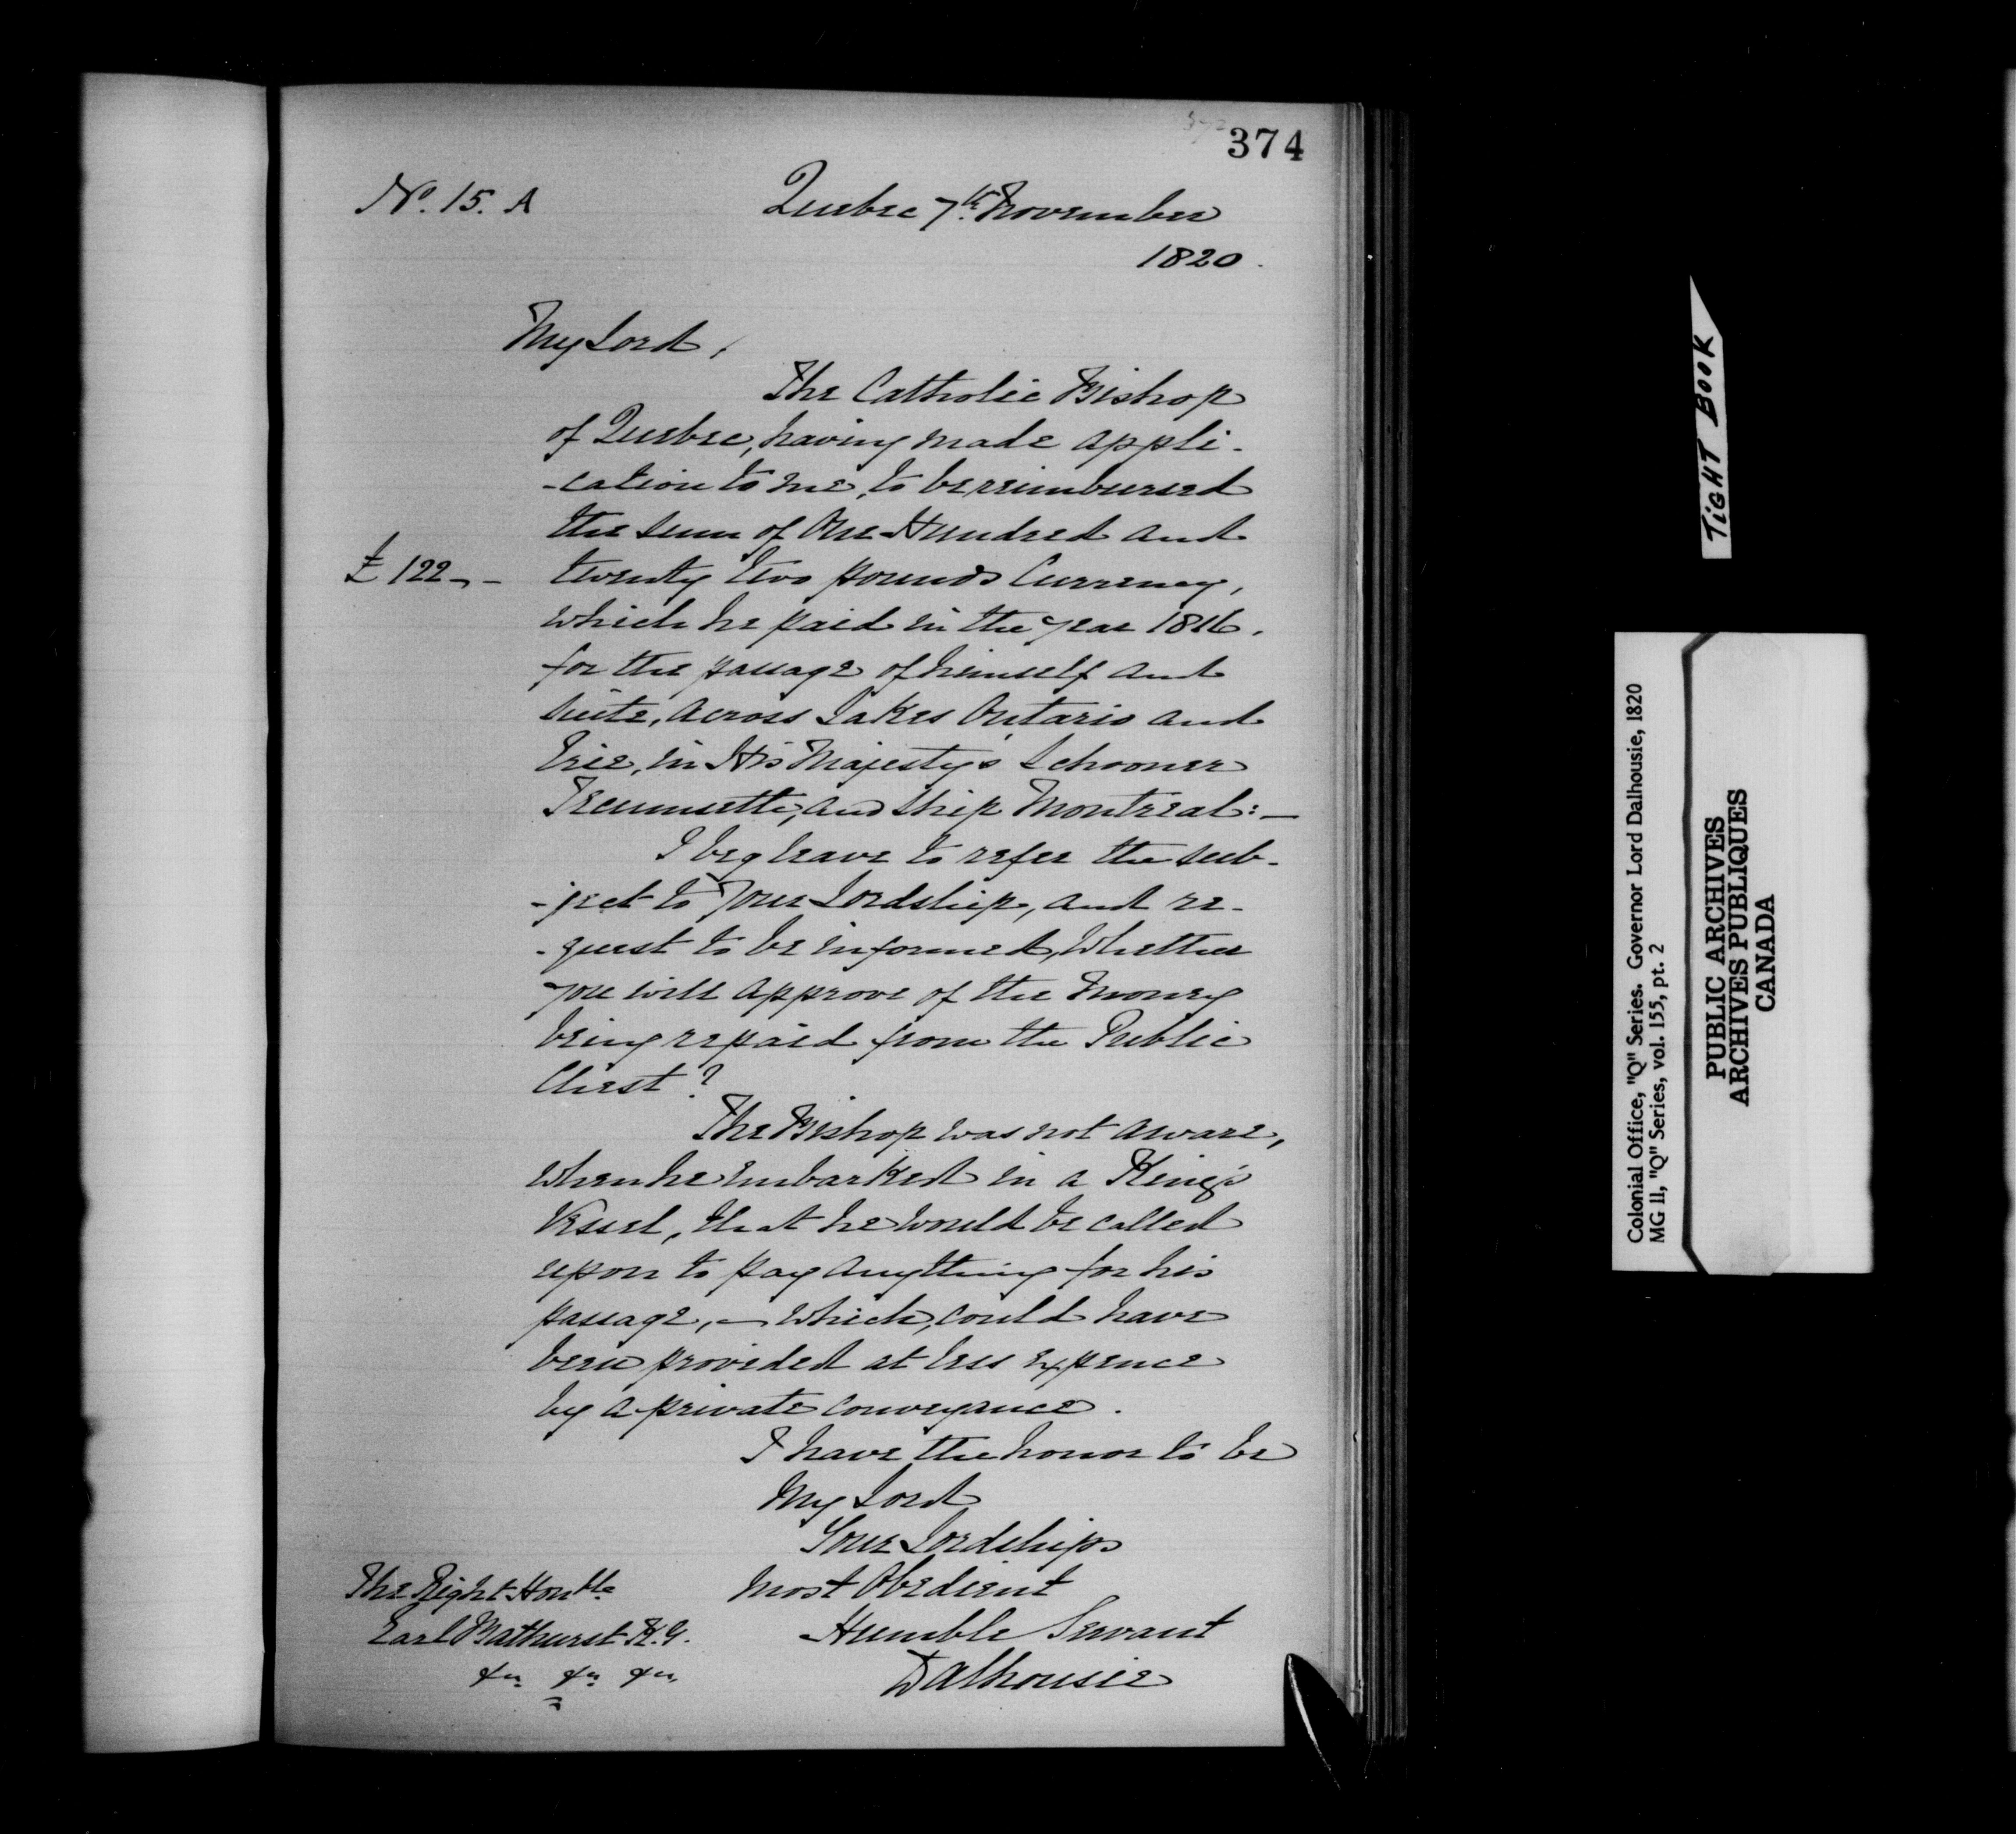 374
No. 15. A
Quebec 7th November
1820.
My Lord,
The Catholic Bishop
of Quebec, having made appli-
-cation to me, to be reimbursed
the sum of One Hundred and
£122-,- twenty two pounds Currency,
which he paid in the year 1816.
for the passage of himself and
suite, across Lakes Ontario and
Erie, in His Majesty's Schooner
Tecumseth, and Ship Montreal:-
I beg leave to refer the sub-
-ject to Your Lordship, and re-
-quest to be informed, Whether
you will approve of the Money
being repaid from the Public
Chest?
The Bishop was not aware,
when he embarked in a King's
Vessel, that he would be called
upon to pay anything for his
passage, - which, could have
been provided at less expence
by a private conveyance.
I have the honor to be
My Lord
Your Lordships
most Obedient
Humble Servant
Dalhousie
The Right Honble
Earl Bathurst K.G.
&c &c &c
TiGHT BOOK
Colonial Office, "Q" Series. Governor Lord Dalhousie, 1820
MG 11, "Q" Series, vol. 155, pt. 2
PUBLIC ARCHIVES
ARCHIVES PUBLIQUES
CANADA